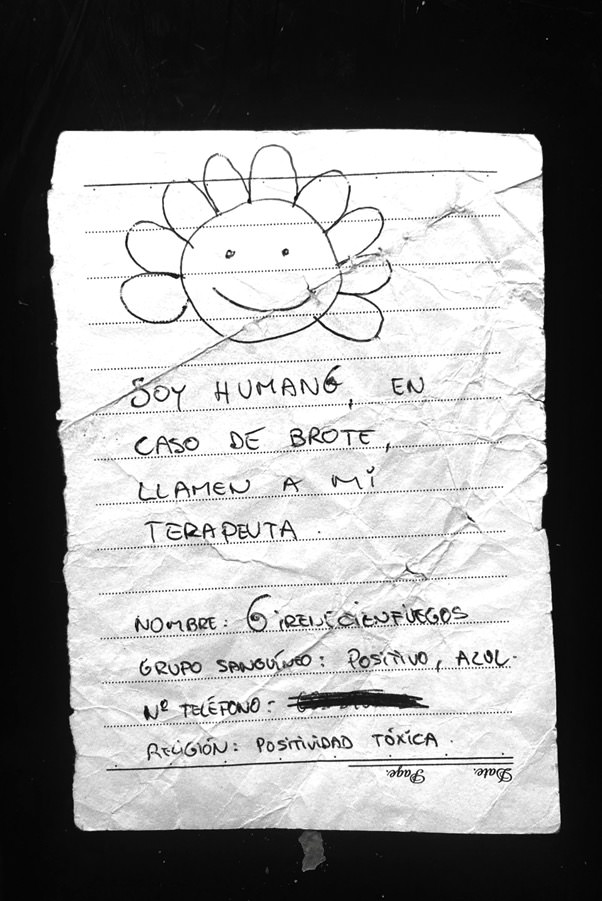 SOY HUMANO, EN
CASO DE BROTE,
LLAMEN A MI
TERAPEUTA.
NOMBRE: 6IRENECIENFUEGOS
GRUPO SANGUÍNEO: POSITIVO, AZUL.
Nº TELÉFONO:
RELIGIÓN: POSITIVIDAD TÓXICA.
Date:
Page: